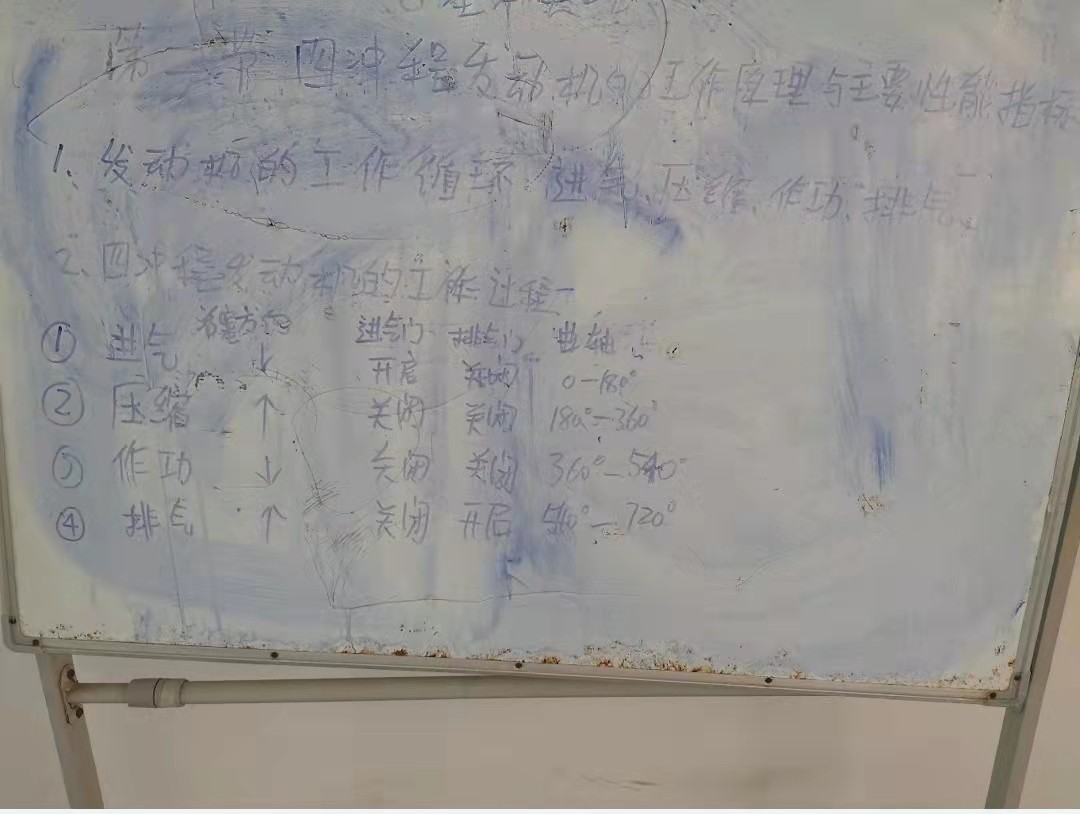 第二节 四冲程发动机的工作原理与主要性能指标
1、发动机的工作循环 进气、压缩、作功、排气、
2、四冲程发动机的工作过程
活塞方向 进气门 排气门 曲轴
① 进气 ↓ 开启 关闭 0—180°
② 压缩 ↑ 关闭 关闭 180°—360°
③ 作功 ↓ 关闭 关闭 360°—540°
④ 排气 ↑ 关闭 开启 540°—720°